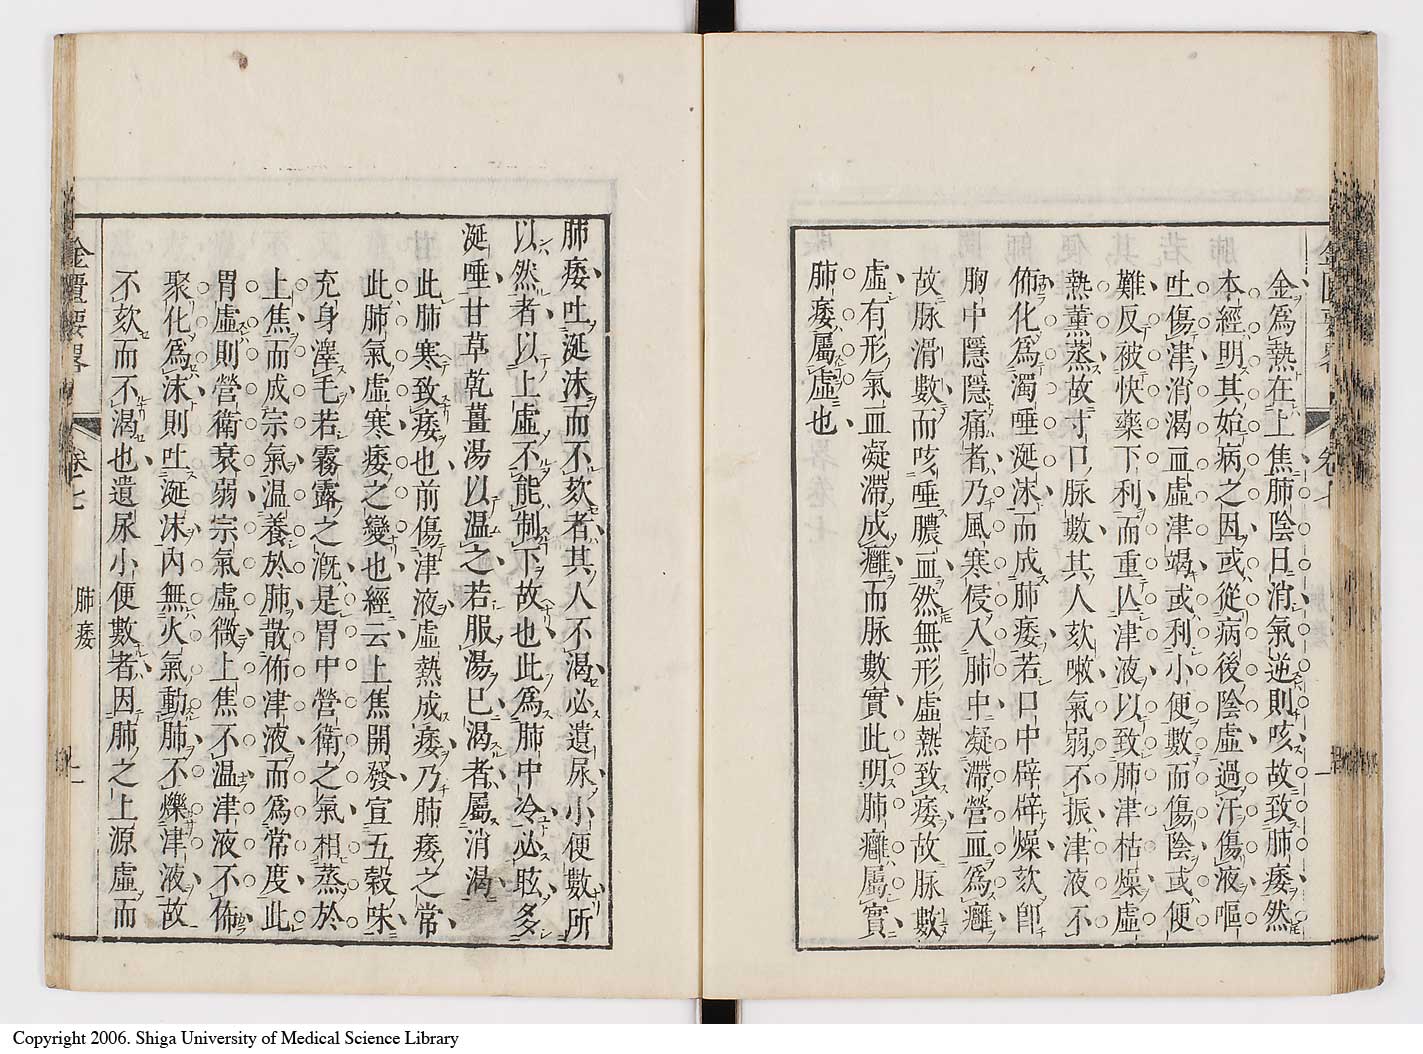 金爲熱在上焦肺陰日消氣逆則咳故致肺痿然
本經明其始病之因或從病後陰虛過汗傷液嘔
吐傷津消渴血虛津竭或利小便數而傷陰或便
難反被快藥下利而重亾津液以致肺津枯燥虛
熱薰蒸故寸口脉數其人欬嗽氣弱不振津液不
佈化爲濁唾涎沫而成肺痿若口中辟辟燥欬卽
胸中隱隱痛者乃風寒侵入肺中凝滯營血爲癰
故脉滑數而咳唾膿血然無形虛熱致痿故脉數
虛有形氣血凝滯成癰而脉數實此明肺癰屬實
肺痿屬虛也
肺痿吐涎沫而不欬者其人不渴必遺尿小便數所
以然者以上虛不能制下故也此爲肺中冷必眩多
涎唾甘草乾薑湯以温之若服湯已渴者屬消渴
此肺寒致痿也前傷津液虛熱成痿乃肺痿之常
此肺氣虛寒痿之變也經云上焦開發宣五榖味
充身澤毛若霧露之漑是胃中營衛之氣相蒸於
上焦而成宗氣温養於肺散佈津液而爲常度此
胃虛則營衛衰弱宗氣虛微上焦不温津液不佈
聚化爲沫則吐涎沫內無火氣動肺不爍津液故
不欬而不渴也遺尿小便數者因肺之上源虛而
金匱要畧 卷七 肺痿
Copyright 2006. Shiga University of Medical Science Library